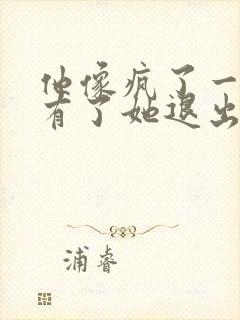 他像疯了一
有了她退出
浦睿